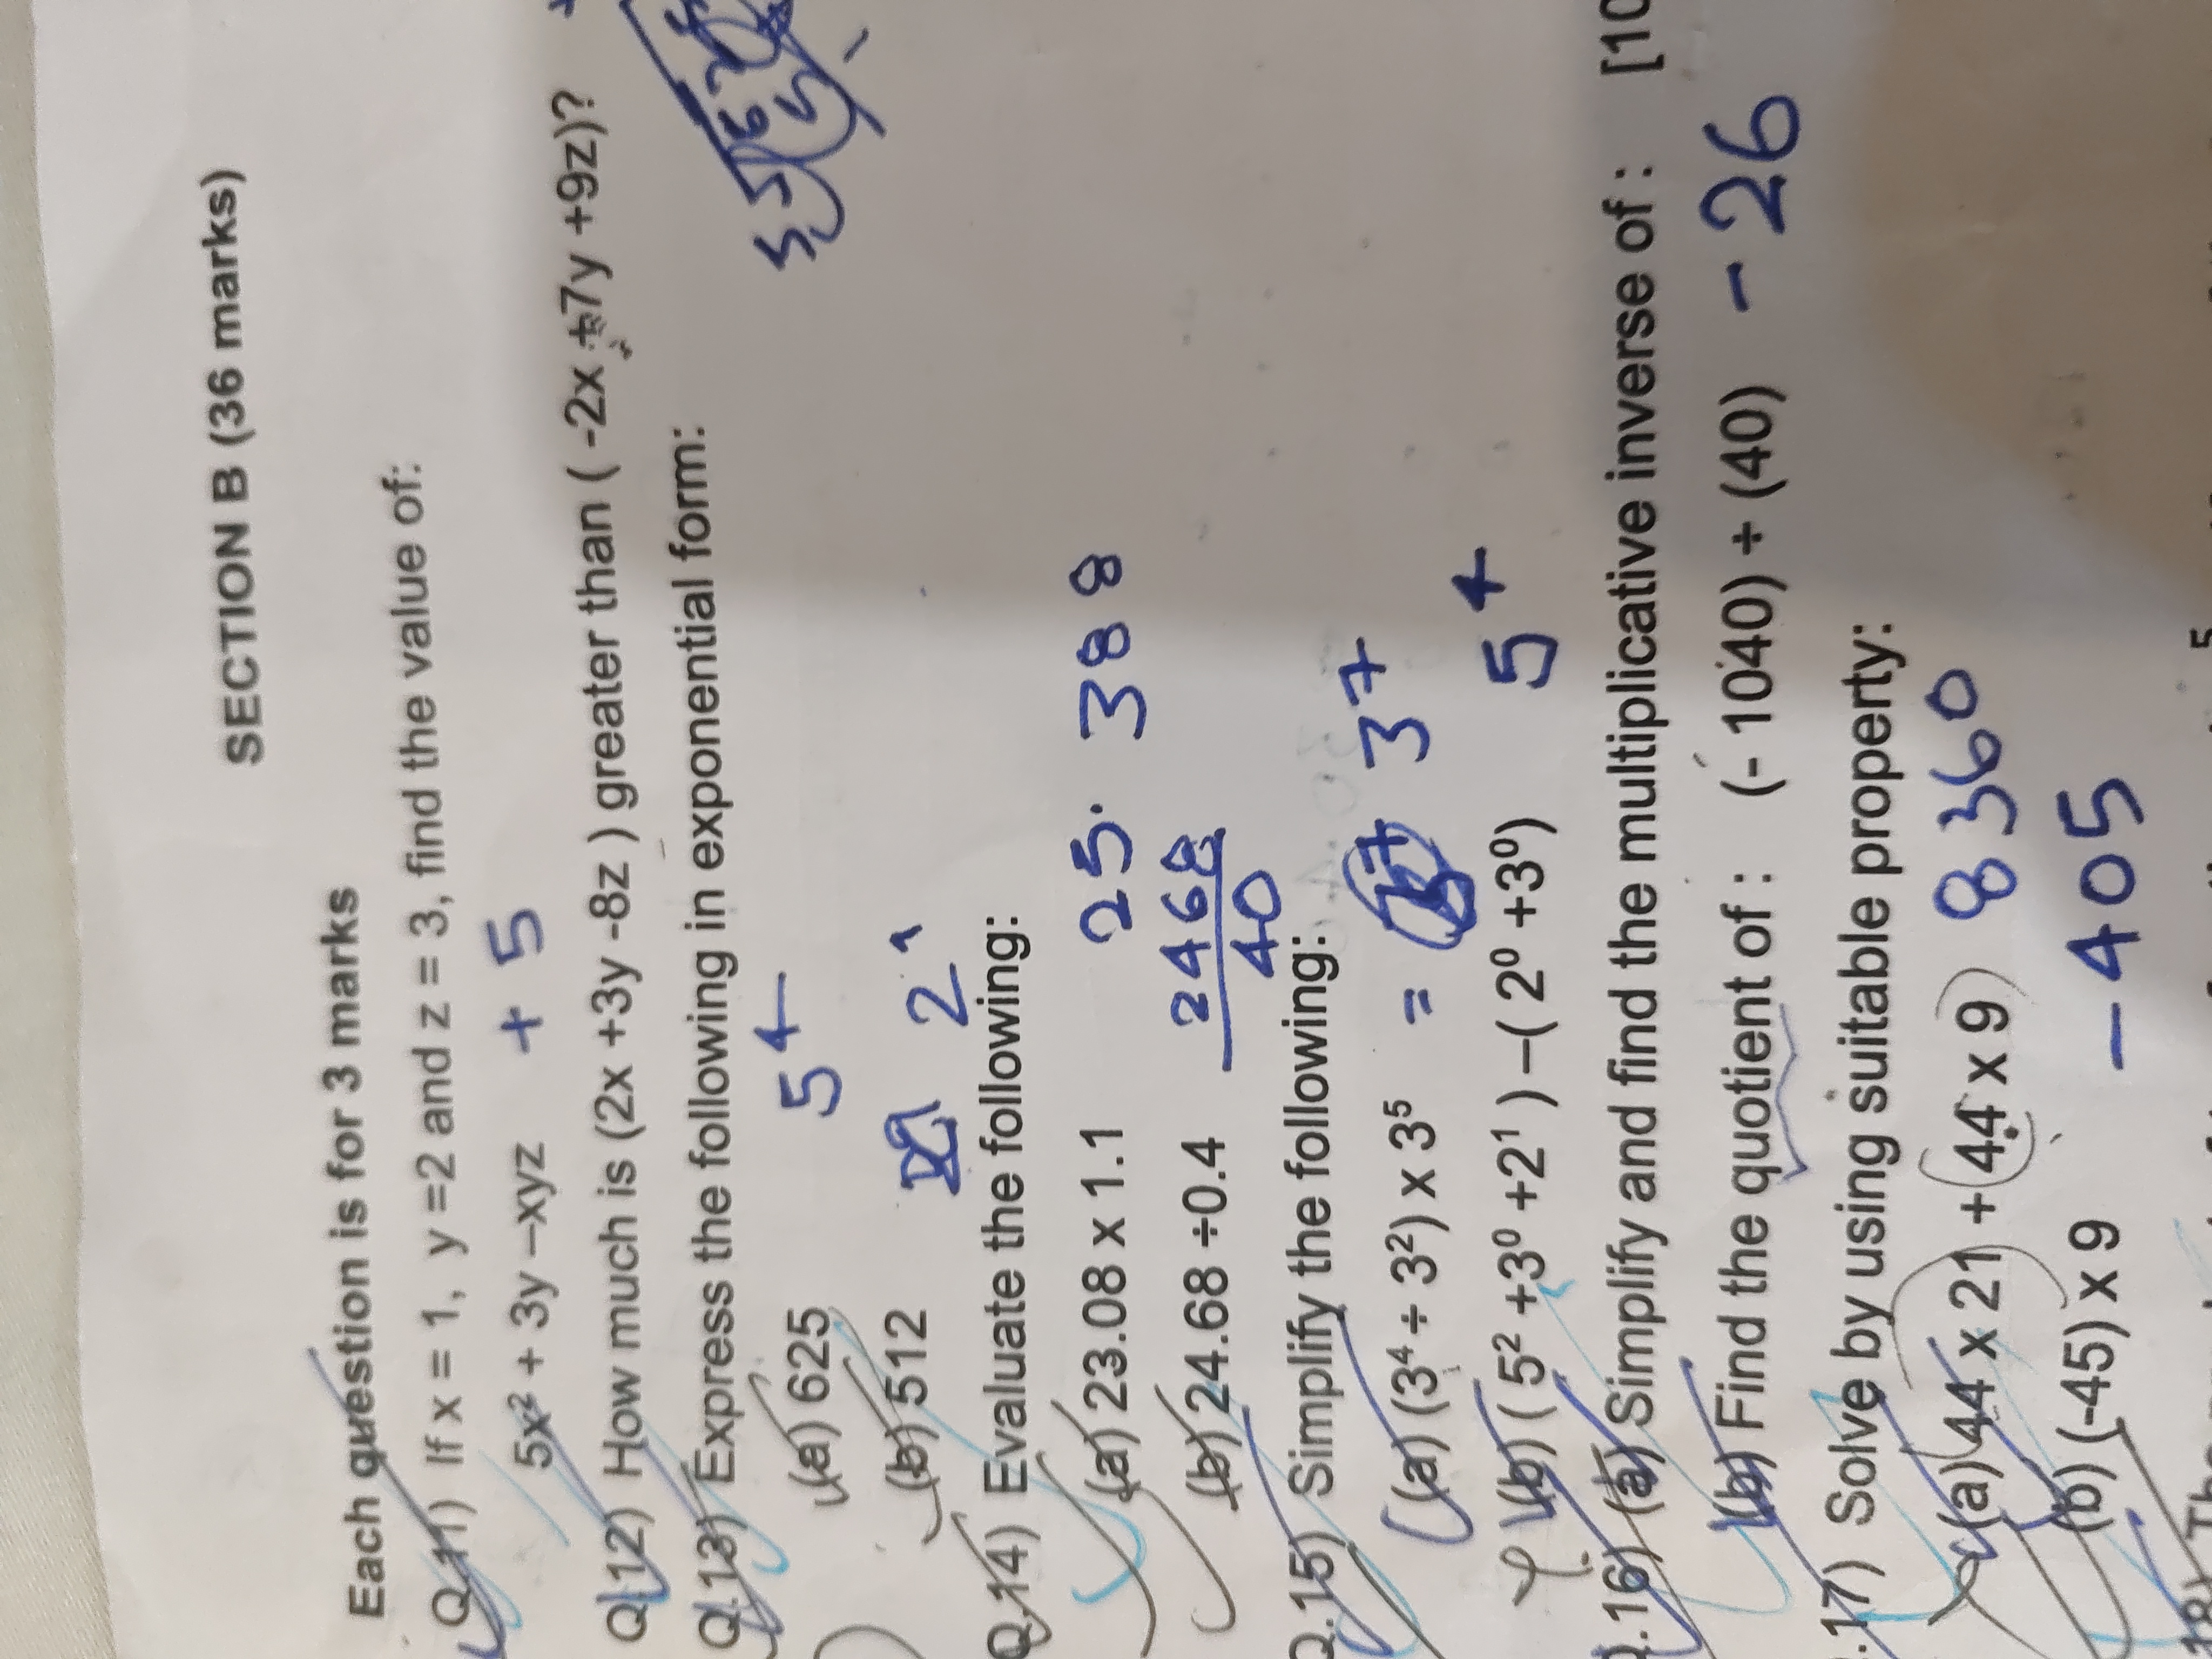 SECTION B (36 marks)
Each question is for 3 marks
Q.11) If x = 1, y =2 and z = 3, find the value of:
5x² + 3y –xyz + 5
Q.12) How much is (2x +3y -8z ) greater than ( -2x +7y +9z)?
Q.13) Express the following in exponential form:
(a) 625 5⁴
(b) 512 2
Q.14) Evaluate the following:
(a) 23.08 x 1.1 25.388
(b) 24.68 ÷0.4 2468
40
Q.15) Simplify the following:
(a) (3⁴ ÷ 3²) x 3⁵ = 3⁷
(b) ( 5² +3⁰ +2¹ ) –( 2⁰ +3⁰) 5⁴
.16) (a) Simplify and find the multiplicative inverse of : [10
(b) Find the quotient of : (- 1040) ÷ (40) - 26
.17) Solve by using suitable property:
(a) 44 x 21 + 44 x 9 8360
(b) (-45) x 9 - 405